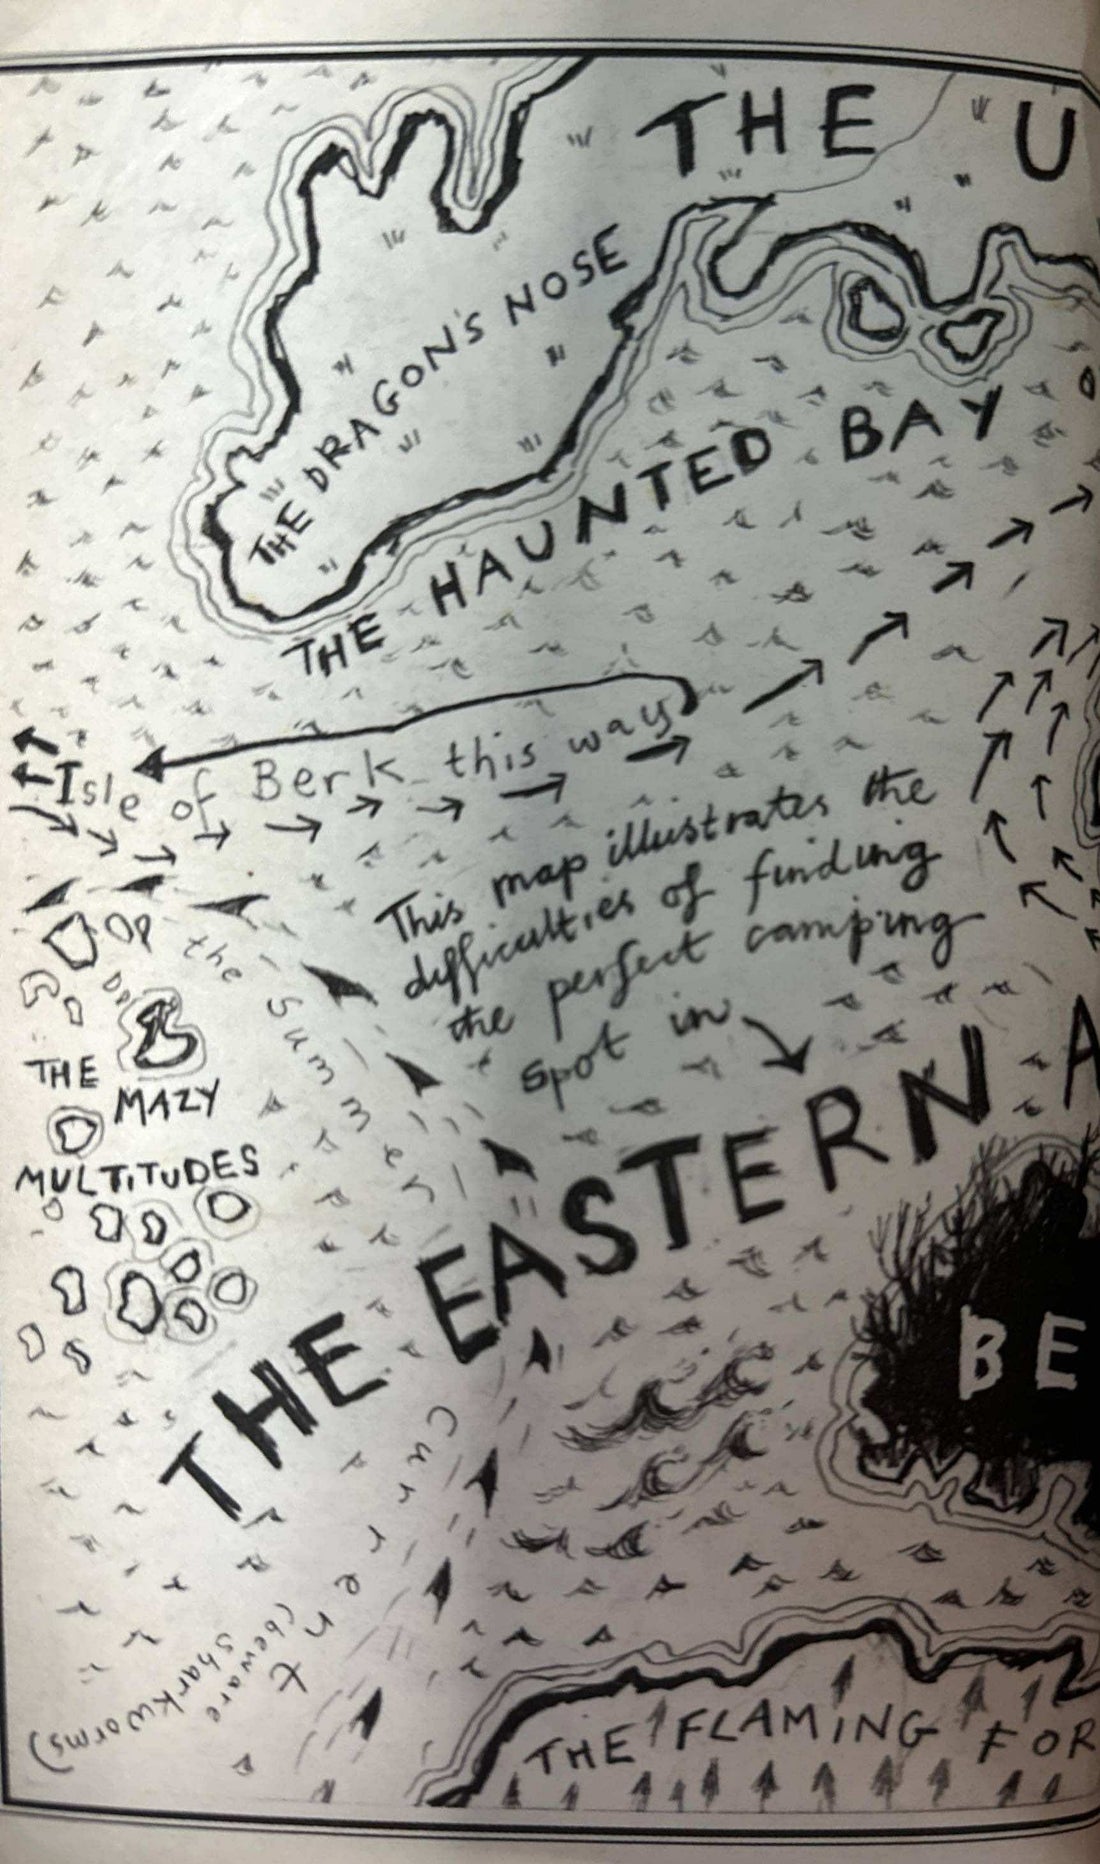 THE U
THE DRAGON'S NOSE
THE HAUNTED BAY
Isle of Berk this way
This map illustrates the
difficulties of finding
the perfect camping
spot in
THE EASTERN A
THE
MAZY
MULTITUDES
the Summer Current
(beware
sharkworms)
BE
THE FLAMING FOR